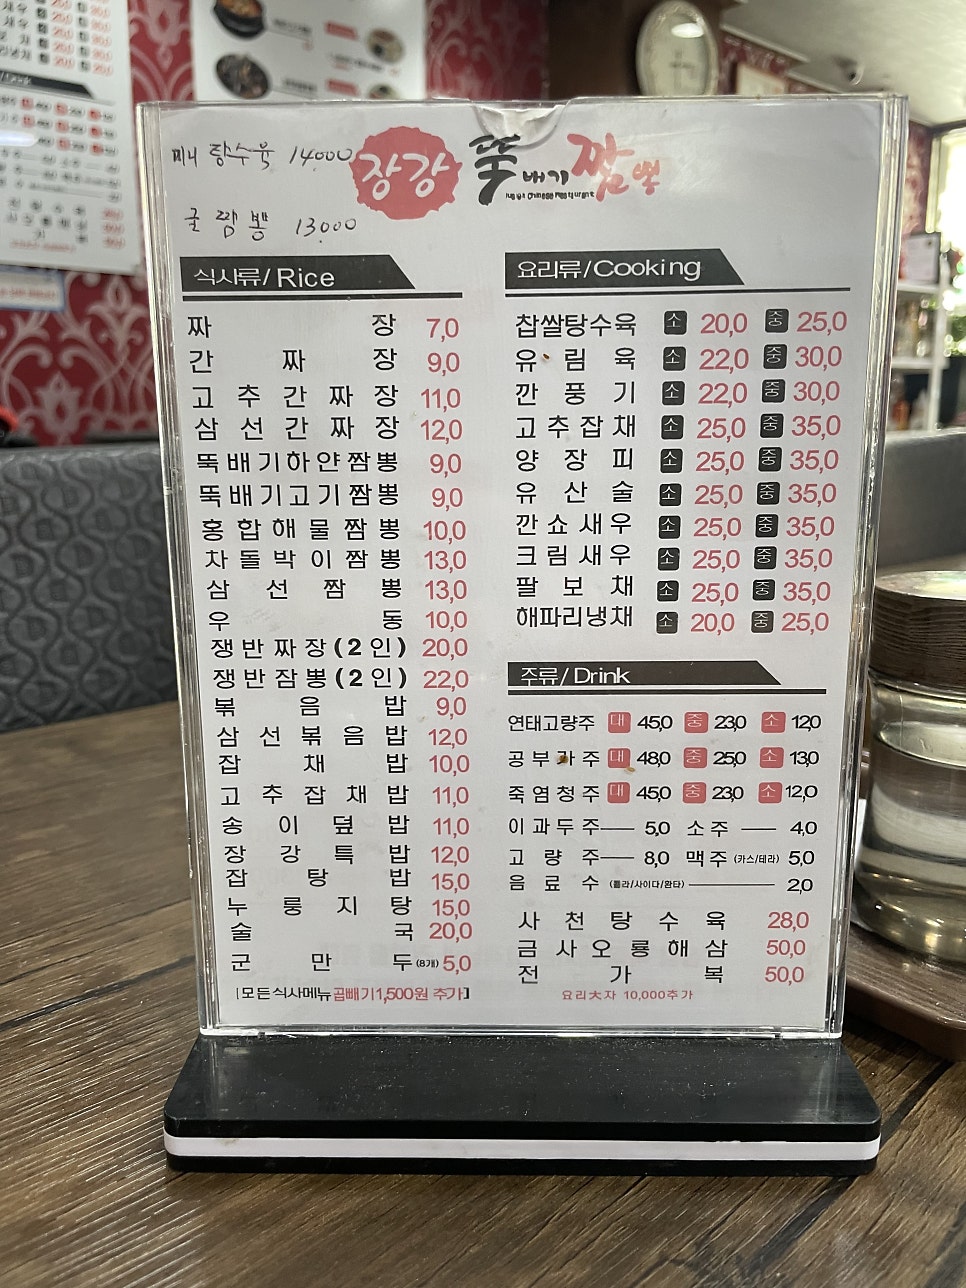 미니 탕수육 14,000
굴 짬뽕 13,000
장강 뚝배기짬뽕
Chinese Restaurant
식사류/Rice
짜장 7,0
간짜장 9,0
고추간짜장 11,0
삼선간짜장 12,0
뚝배기하얀짬뽕 9,0
뚝배기고기짬뽕 9,0
홍합해물짬뽕 10,0
차돌박이짬뽕 13,0
삼선짬뽕 13,0
우동 10,0
쟁반짜장(2인) 20,0
쟁반잠뽕(2인) 22,0
볶음밥 9,0
삼선볶음밥 12,0
잡채밥 10,0
고추잡채밥 11,0
송이덮밥 11,0
장강특밥 12,0
잡탕밥 15,0
누룽지탕 15,0
술국 20,0
군만두(8개) 5,0
[모든식사메뉴곱빼기1,500원 추가]
요리류/Cooking
찹쌀탕수육 소 20,0 중 25,0
유림육 소 22,0 중 30,0
깐풍기 소 22,0 중 30,0
고추잡채 소 25,0 중 35,0
양장피 소 25,0 중 35,0
유산슬 소 25,0 중 35,0
깐쇼새우 소 25,0 중 35,0
크림새우 소 25,0 중 35,0
팔보채 소 25,0 중 35,0
해파리냉채 소 20,0 중 25,0
주류/Drink
연태고량주 대 45,0 중 23,0 소 12,0
공부가주 대 48,0 중 25,0 소 13,0
죽엽청주 대 45,0 중 23,0 소 12,0
이과두주 5,0 소주 4,0
고량주 8,0 맥주 (카스/테라) 5,0
음료수 (콜라/사이다/환타) 2,0
사천탕수육 28,0
금사오룡해삼 50,0
전가복 50,0
요리大자 10,000추가